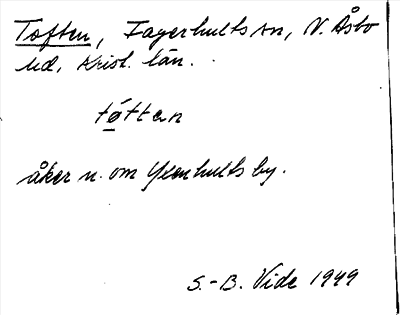 Toften, Fagerhults sn, N. Åsbo
hd, Krist. län.
tóftan
åker n. om Yxenhults by.
S.-B. Vide 1949